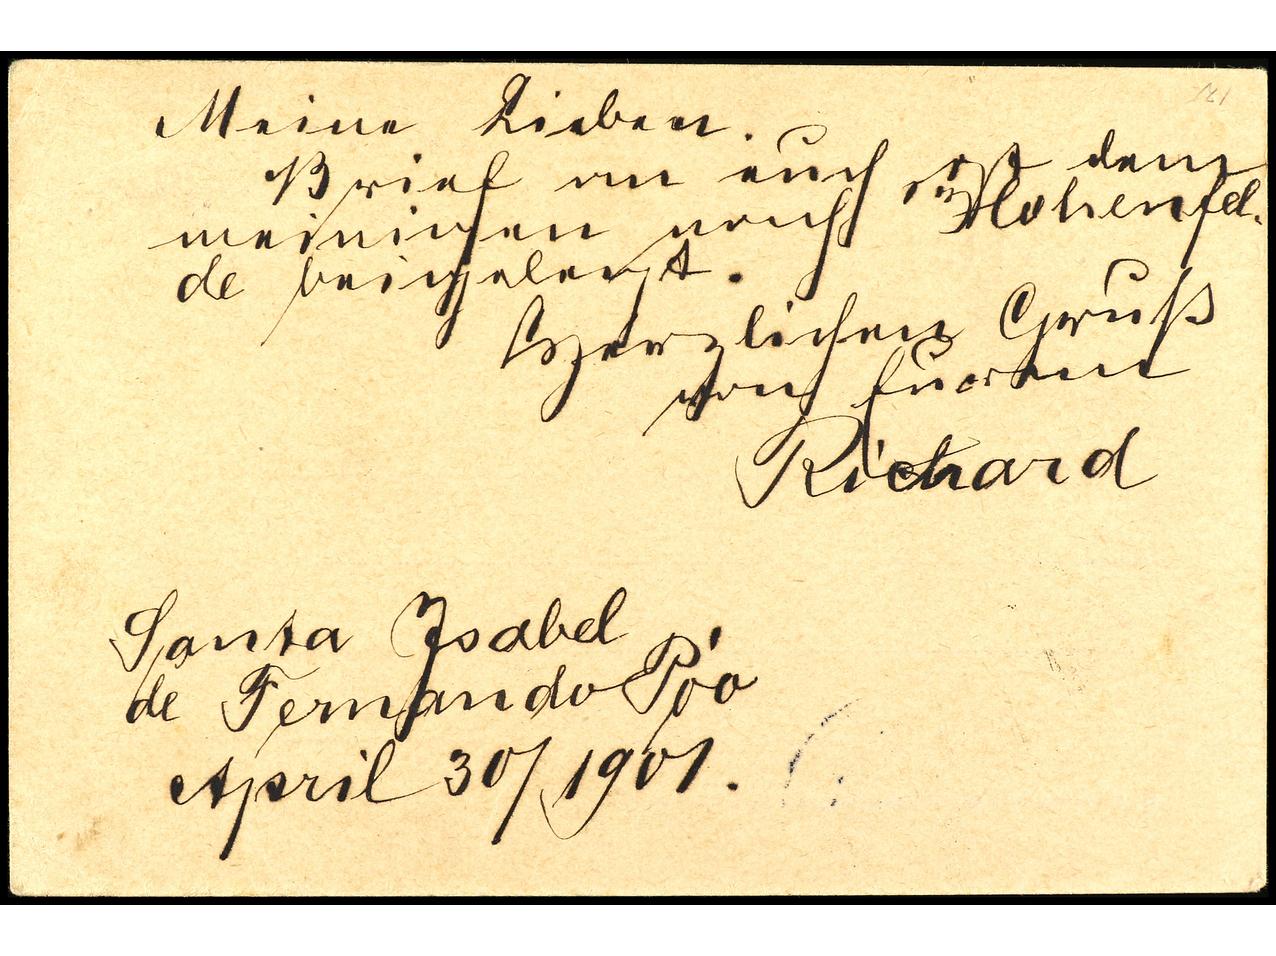 Meine Lieben.
Brief an euch ist dem
meinigen nach Hohenfel-
de beigelegt.
Herzlichen Gruß
von Eurem
Richard
Santa Isabel
de Fernando Póo
April 30/1901.